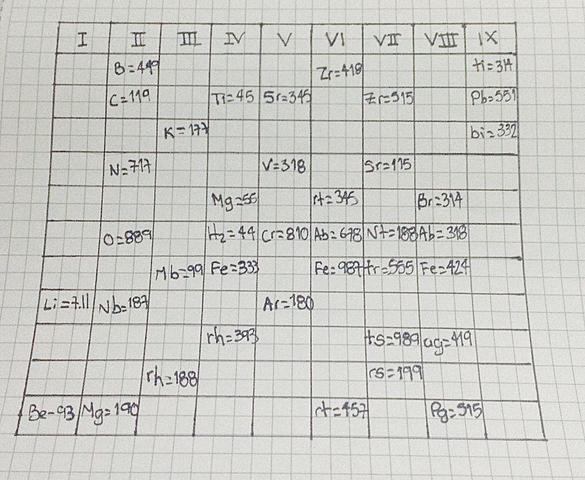 I II III IV V VI VII VIII IX
B=449 Zr=418 ti=314
C=119 Ti=45 Sr=345 Zr=515 Pb=551
K=177 bi=332
N=717 V=318 Sr=115
Mg=55 rt=345 Br=314
O=889 H2=44 Cr=810 Ab=678 Nt=188 Ab=318
Mb=99 Fe=333 Fe=987 tr=555 Fe=424
Li=711 Nb=187 Ar=180
rh=393 ts=989 ag=419
rh=188 rs=199
Be-93 Mg=190 rt=457 Pg=515